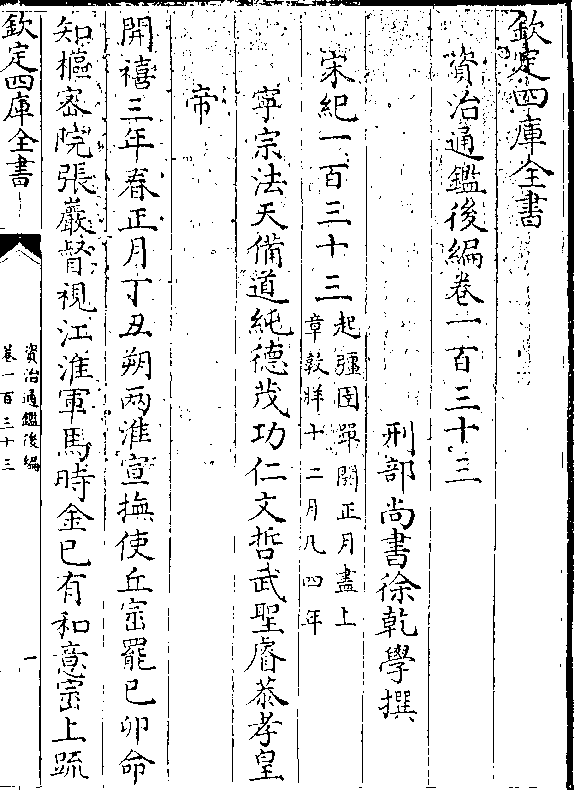 欽定四庫全書
資治通鑑後編卷一百三十三
刑部尚書徐乾學撰
宋紀一百三十三
起彊圉單閼正月盡上
章敦牂十二月凡四年
寧宗法天備道純德茂功仁文哲武聖睿恭孝皇
帝
開禧三年春正月丁丑朔兩淮宣撫使丘崈罷已卯命
知樞密院張巖督視江淮軍馬時金已有和意崈上疏
欽定四庫全書
資治通鑑後編
卷一百三十三
一